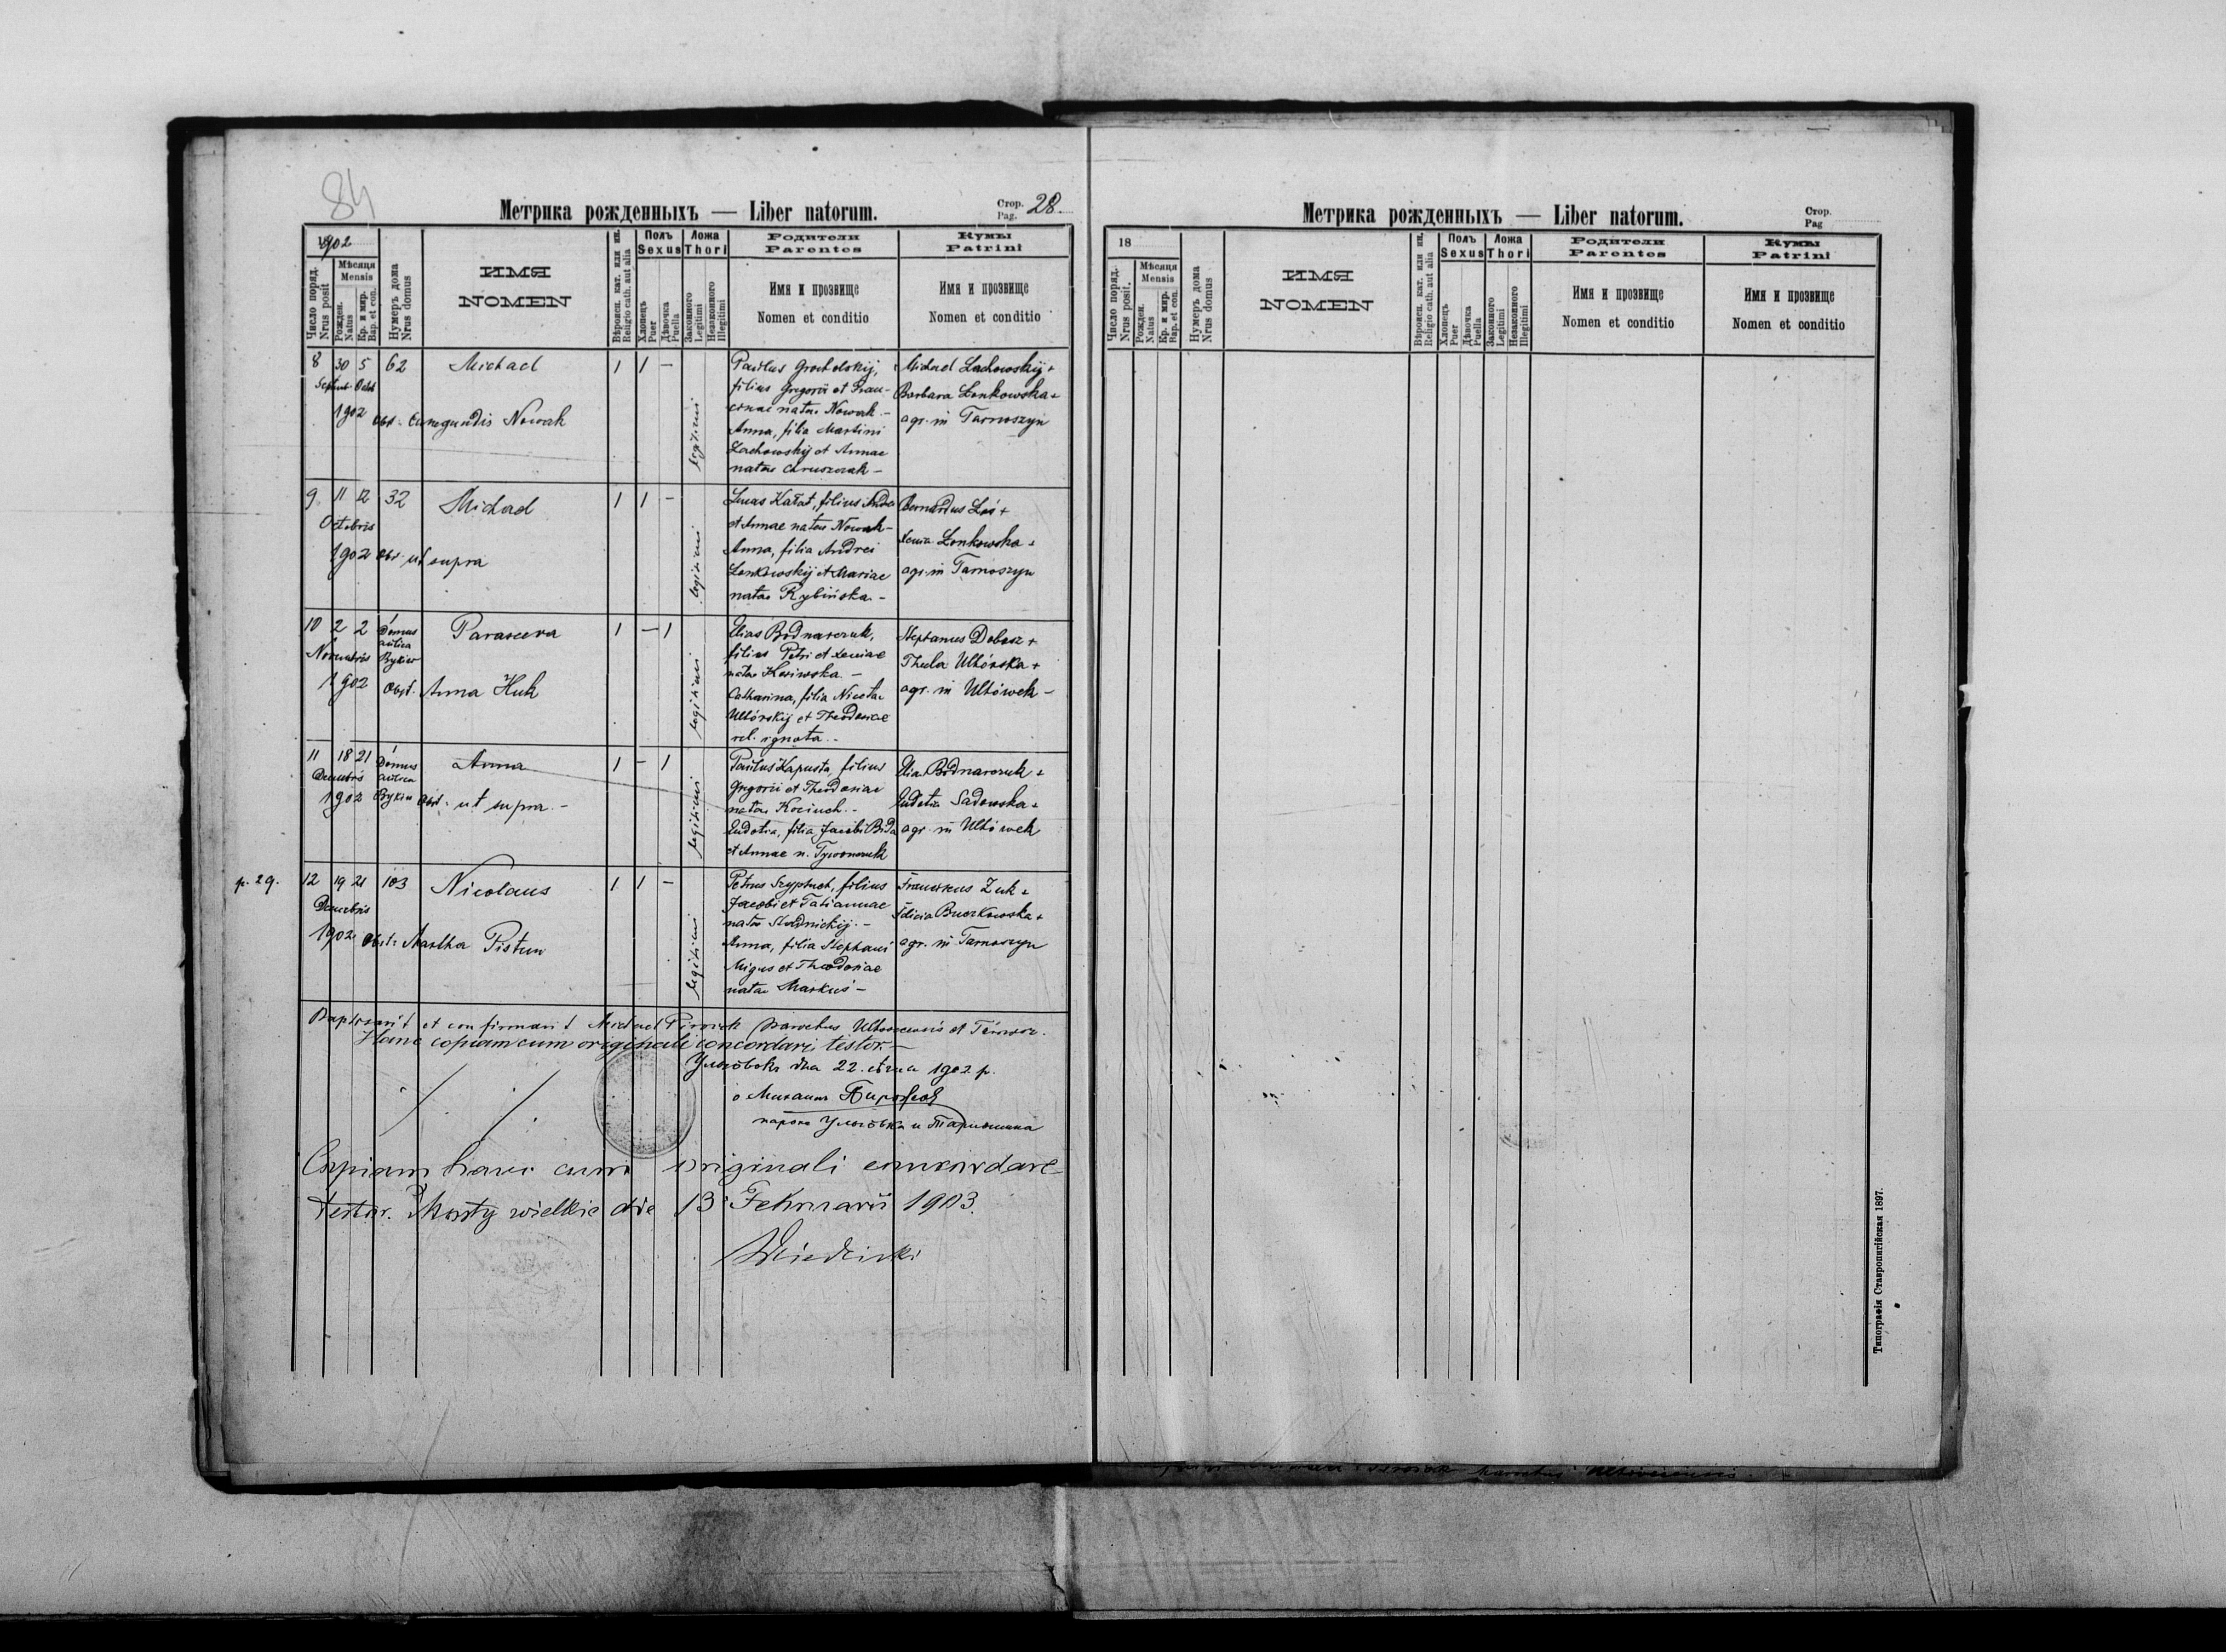 84
Метрика рожденныхъ — Liber natorum.
Стор. Pag. 28.
1902
Число поряд. Nrus posit
Мѣсяця Mensis
Рожден. Natus
Кр. и мир. Bap. et con.
Нумеръ дома Nrus domus
ИМЯ
NOMEN
Вѣроисп. кат. или ин. Religio cath. aut alia
Полъ Sexus
Хлопецъ Puer
Дѣвочка Puella
Ложа Thori
Законного Legitimi
Незаконного Illegitimi
Родители
Parentes
Имя и прозвище
Nomen et conditio
Кумы
Patrini
Имя и прозвище
Nomen et conditio
8 30 5 62 Michael 1 1 —
Septemb Octob
1902 Obst. Cunegundis Nowak
legitimi
Paulus Grocholskij,
filius Gregorii et Fran-
ciscae natae Nowak —
Anna, filia Martini
Lachowskij et Annae
natae
Michael Lachowskij +
Barbara Lonkowska +
agr. in Tarnoszyn
9 11 12 32 Michael 1 1 —
Octobris
1902 Obst. ut supra
legitimi
Lucas Kałat, filius
et Annae natae Nowak —
Anna, filia Andrei
Lonkowskij et Mariae
natae Rybińska —
Bernardus Loś +
Xenia Lonkowska +
agr. in Tarnoszyn
10 2 2 Domus aulica Rykiw Parasceva 1 — 1
Novembris
1902 Obst. Anna Huk
legitimi
Elias Bodnarczuk,
filius Petri et Xeniae
natae
Catharina, filia Nicolai
Uhlórskij et Theodosiae
rel. ignota —
Stephanus Dobosz +
Thecla Uhlórska +
agr. in Uhlówek —
11 18 21 Domus aulica Rykiw Anna 1 — 1
Decembris
1902 Obst. ut supra —
legitimi
Paulus Kapusta, filius
Gregorii et Theodosiae
natae Kociuch —
Eudokia, filia Jacobi Bida
et Annae n. Tywoniuk
Elias Bodnarczuk +
Eudokia Sadowska +
agr. in Uhlówek
p. 29.
12 19 21 103 Nicolaus 1 1 —
Decembris
1902 Obst. Martha Pistun
legitimi
Petrus Szyptuch, filius
Jacobi et Tatiannae
natae Slodnickij —
Anna, filia Stephani
Migus et Theodosiae
natae Markuś —
Franciscus Zuk +
Felicia Buczkowska +
agr. in Tarnoszyn
Baptisavit et confirmavit Michael Pirożek parochus Uhlovecensis et Tarnosz.
Hanc copiam cum originali concordare testor. —
Угловокъ дня 22. 1902 р.
о Михаилъ Пирожокъ
парохъ Угловка и Тарношина
Copiam hanc cum originali concordare
testor. Mosty wielkie die 13 Februarii 1903.
Метрика рожденныхъ — Liber natorum.
Стор. Pag
18
Число поряд. Nrus posit.
Мѣсяця Mensis
Рожден. Natus
Кр. и мир. Bap. et con.
Нумеръ дома Nrus domus
ИМЯ
NOMEN
Вѣроисп. кат. или ин. Religio cath. aut alia
Полъ Sexus
Хлопецъ Puer
Дѣвочка Puella
Ложа Thori
Законного Legitimi
Незаконного Illegitimi
Родители
Parentes
Имя и прозвище
Nomen et conditio
Кумы
Patrini
Имя и прозвище
Nomen et conditio
Типографія Ставропигійская 1897.